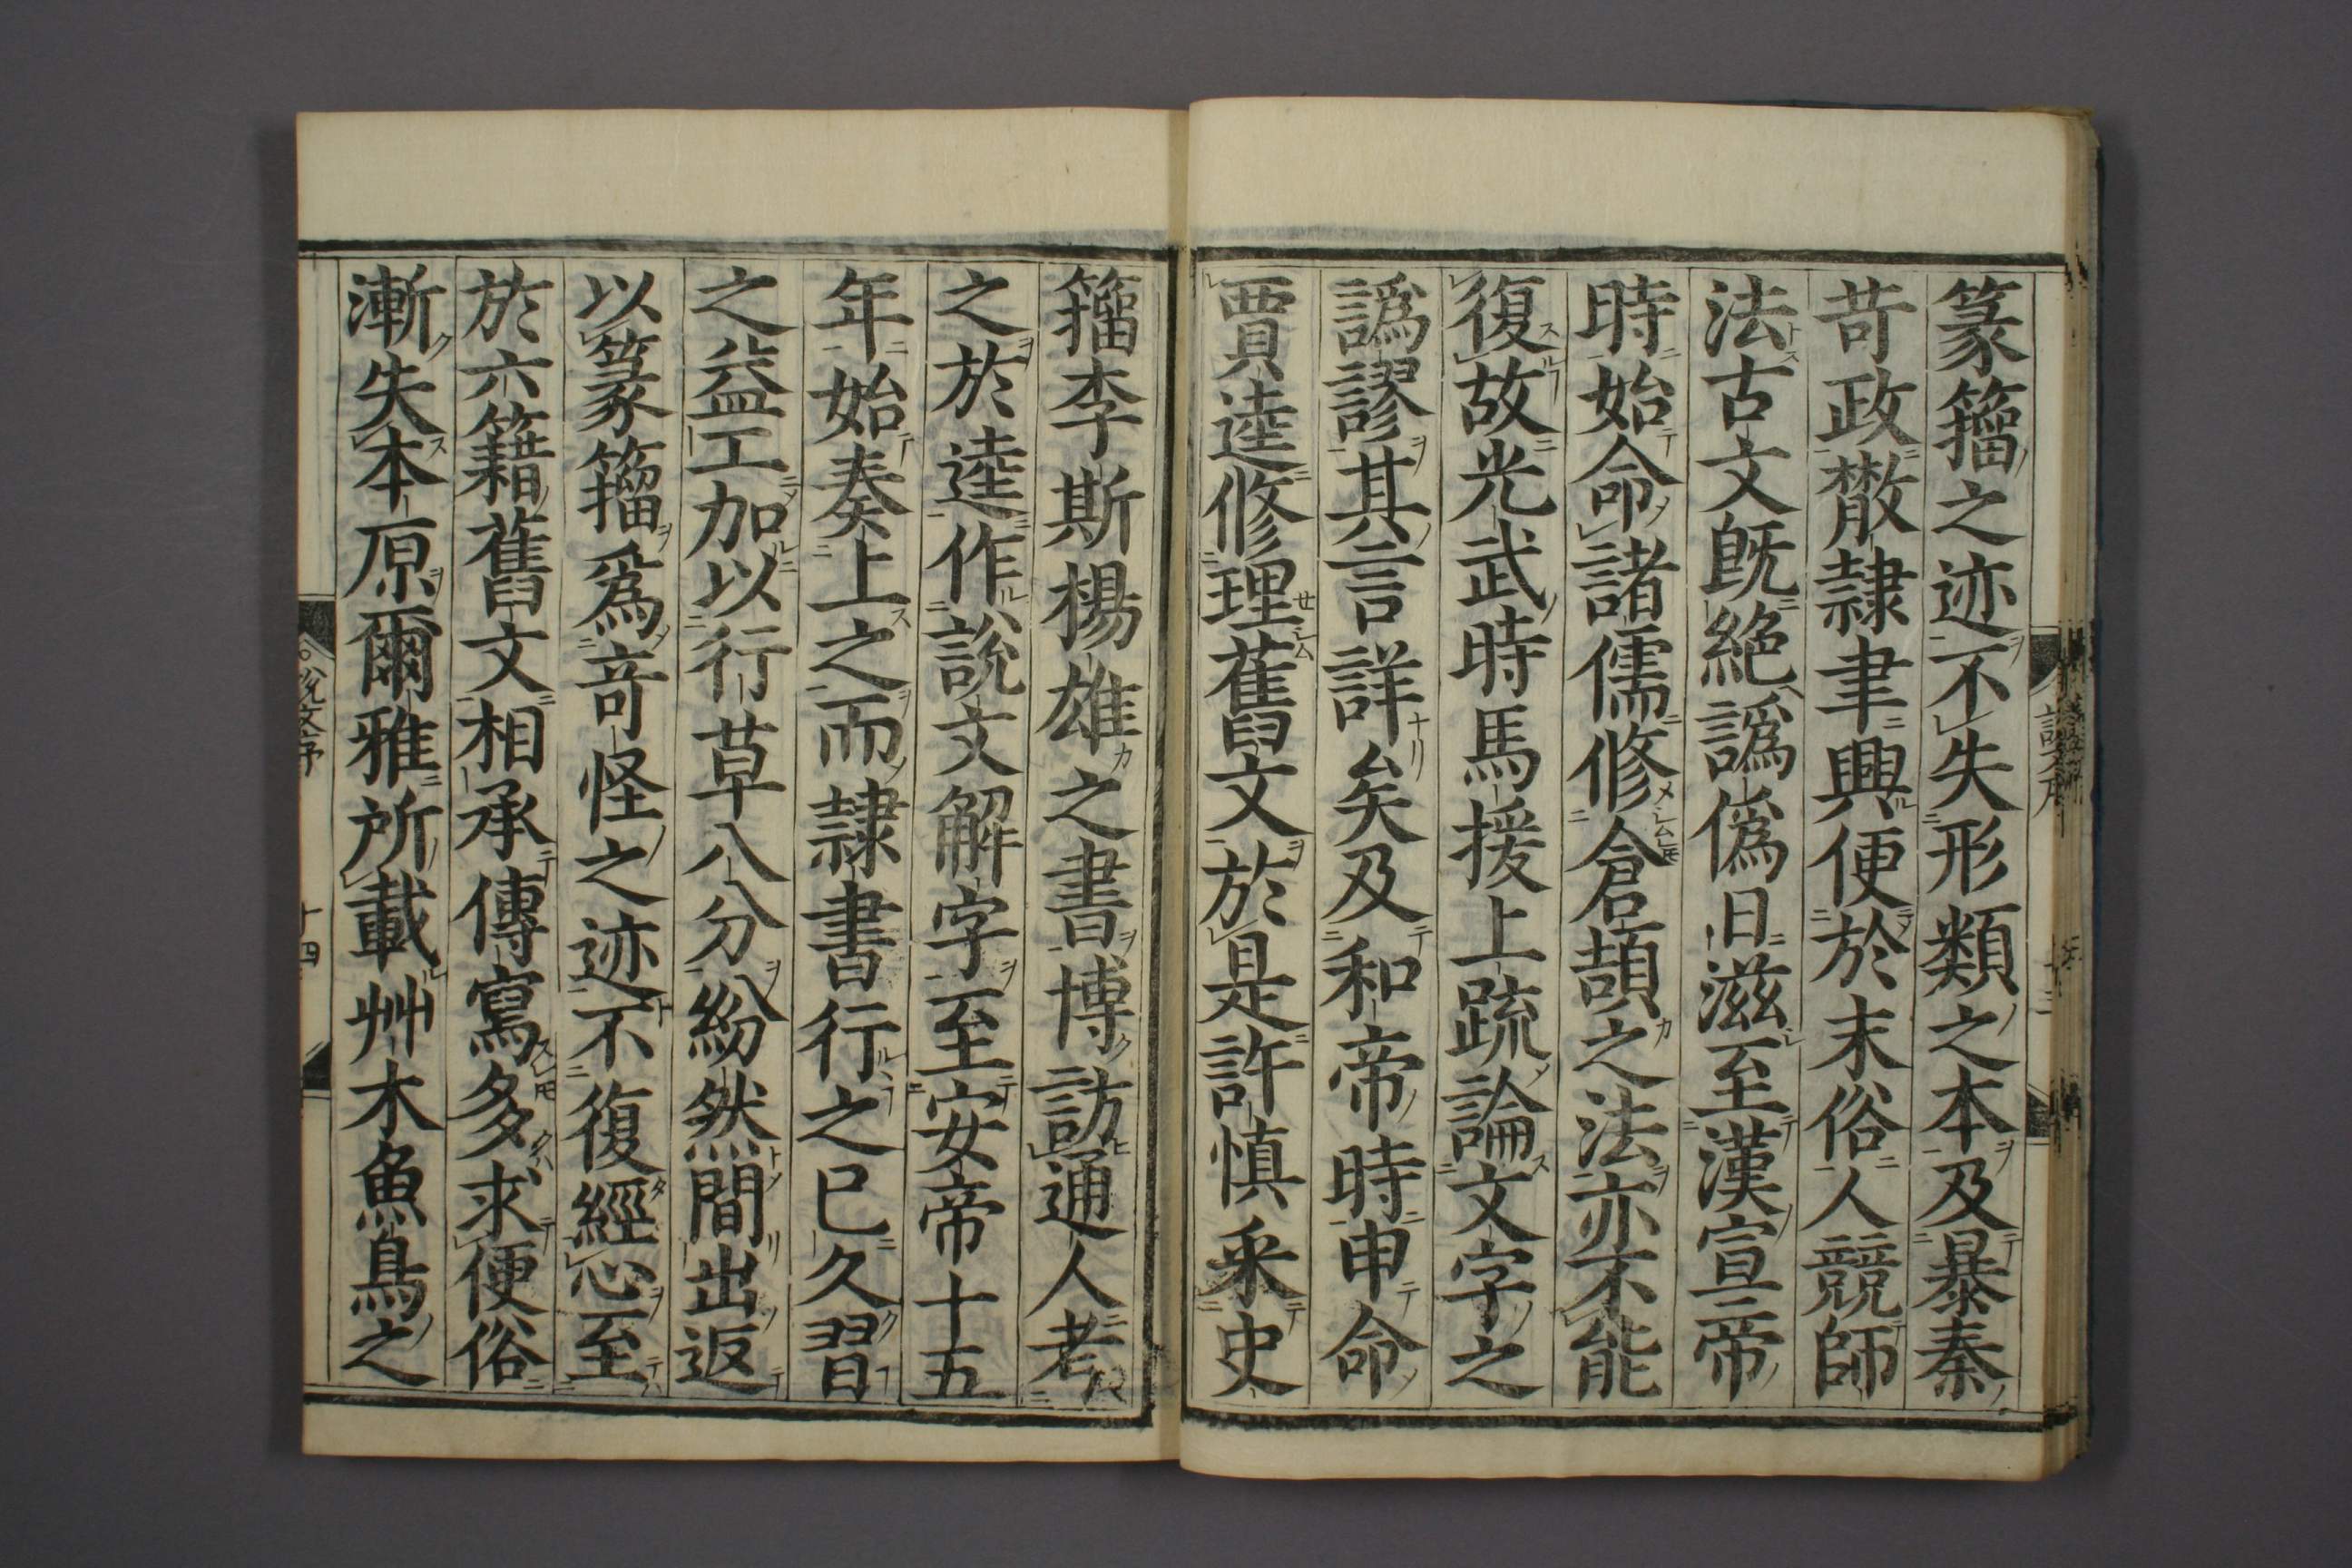 篆籀之迹不失形類之本及暴秦
苛政散隷聿興便於末俗人競師
法古文旣絶譌僞日滋至漢宣帝
時始命諸儒修倉頡之法亦不能
復故光武時馬援上疏論文字之
譌謬其言詳矣及和帝時申命
賈逵修理舊文於是許愼釆史
籀李斯楊雄之書博訪通人考
之於逵作說文解字至安帝十五
年始奏上之而隷書行之已久習
之益工加以行草八分紛然間出返
以篆籀爲竒怪之迹不復經心至
於六籍舊文相承傳寫多求便俗
漸失本原爾雅所載艸木魚鳥之
說文序
十四